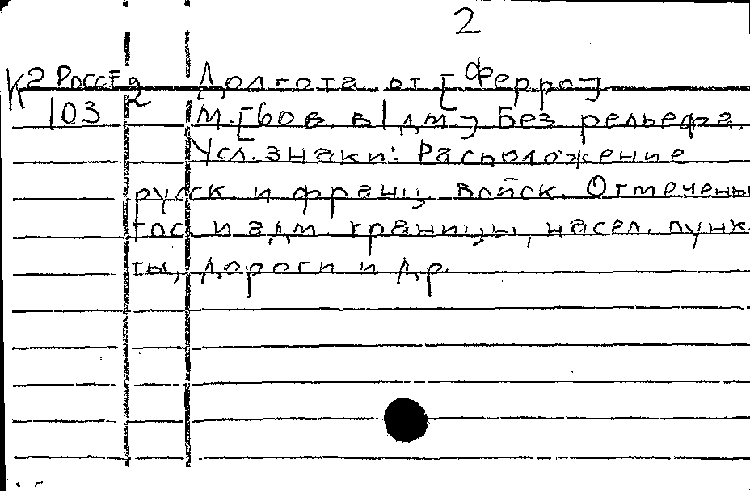 2
К2 Росс-Еg/2 Долгота от [Ферро]
103 М. [60 в. в 1 дм.] Без рельефа.
Усл. знаки: Расположение
русск. и франц. войск. Отмечены
гос. и адм. границы, насел. пунк-
ты, дороги и др.